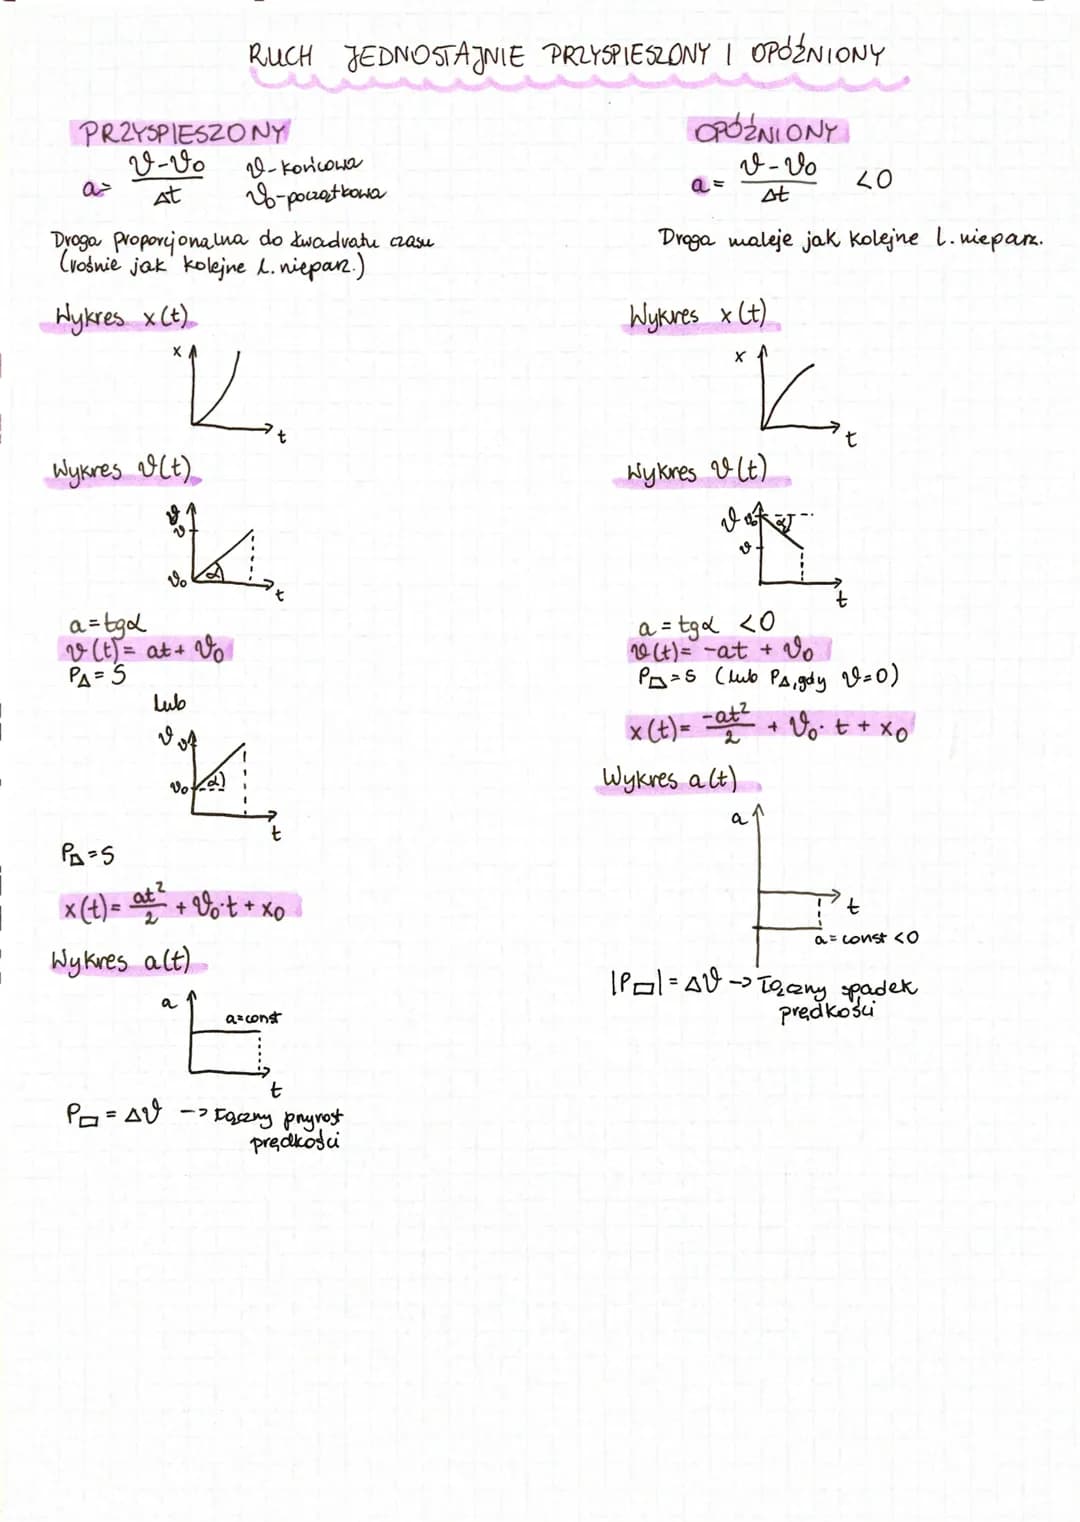 RUCH JEDNOSTAJNIE PRZYSPIESZONY I OPÓŹNIONY
PRZYSPIESZONY
a= v-v₀/Δt
v-końcowa
v₀-początkowa
Droga proporcjonalna do kwadratu czasu
(rośnie jak kolejne l. niepar.)
Wykres x(t)
x
t
Wykres v(t)
v
v
v₀
α
t
a=tgα
v(t)= at+ v₀
P△=S
lub
v
v
v₀
α
t
P⏢=S
x(t)= at²/2 + v₀·t + x₀
Wykres a(t)
a
a=const
t
P▭ = Δv -> łączny przyrost
prędkości
OPÓŹNIONY
a = v-v₀/Δt <0
Droga maleje jak kolejne l. nieparz.
Wykres x(t)
x
t
Wykres v(t)
v
v₀
α
v
t
a = tgα <0
v(t)= -at + v₀
P⏢=S (lub P△, gdy v=0)
x(t)= -at²/2 + v₀·t + x₀
Wykres a(t)
a
t
a=const <0
|P▭| = Δv -> łączny spadek
prędkości